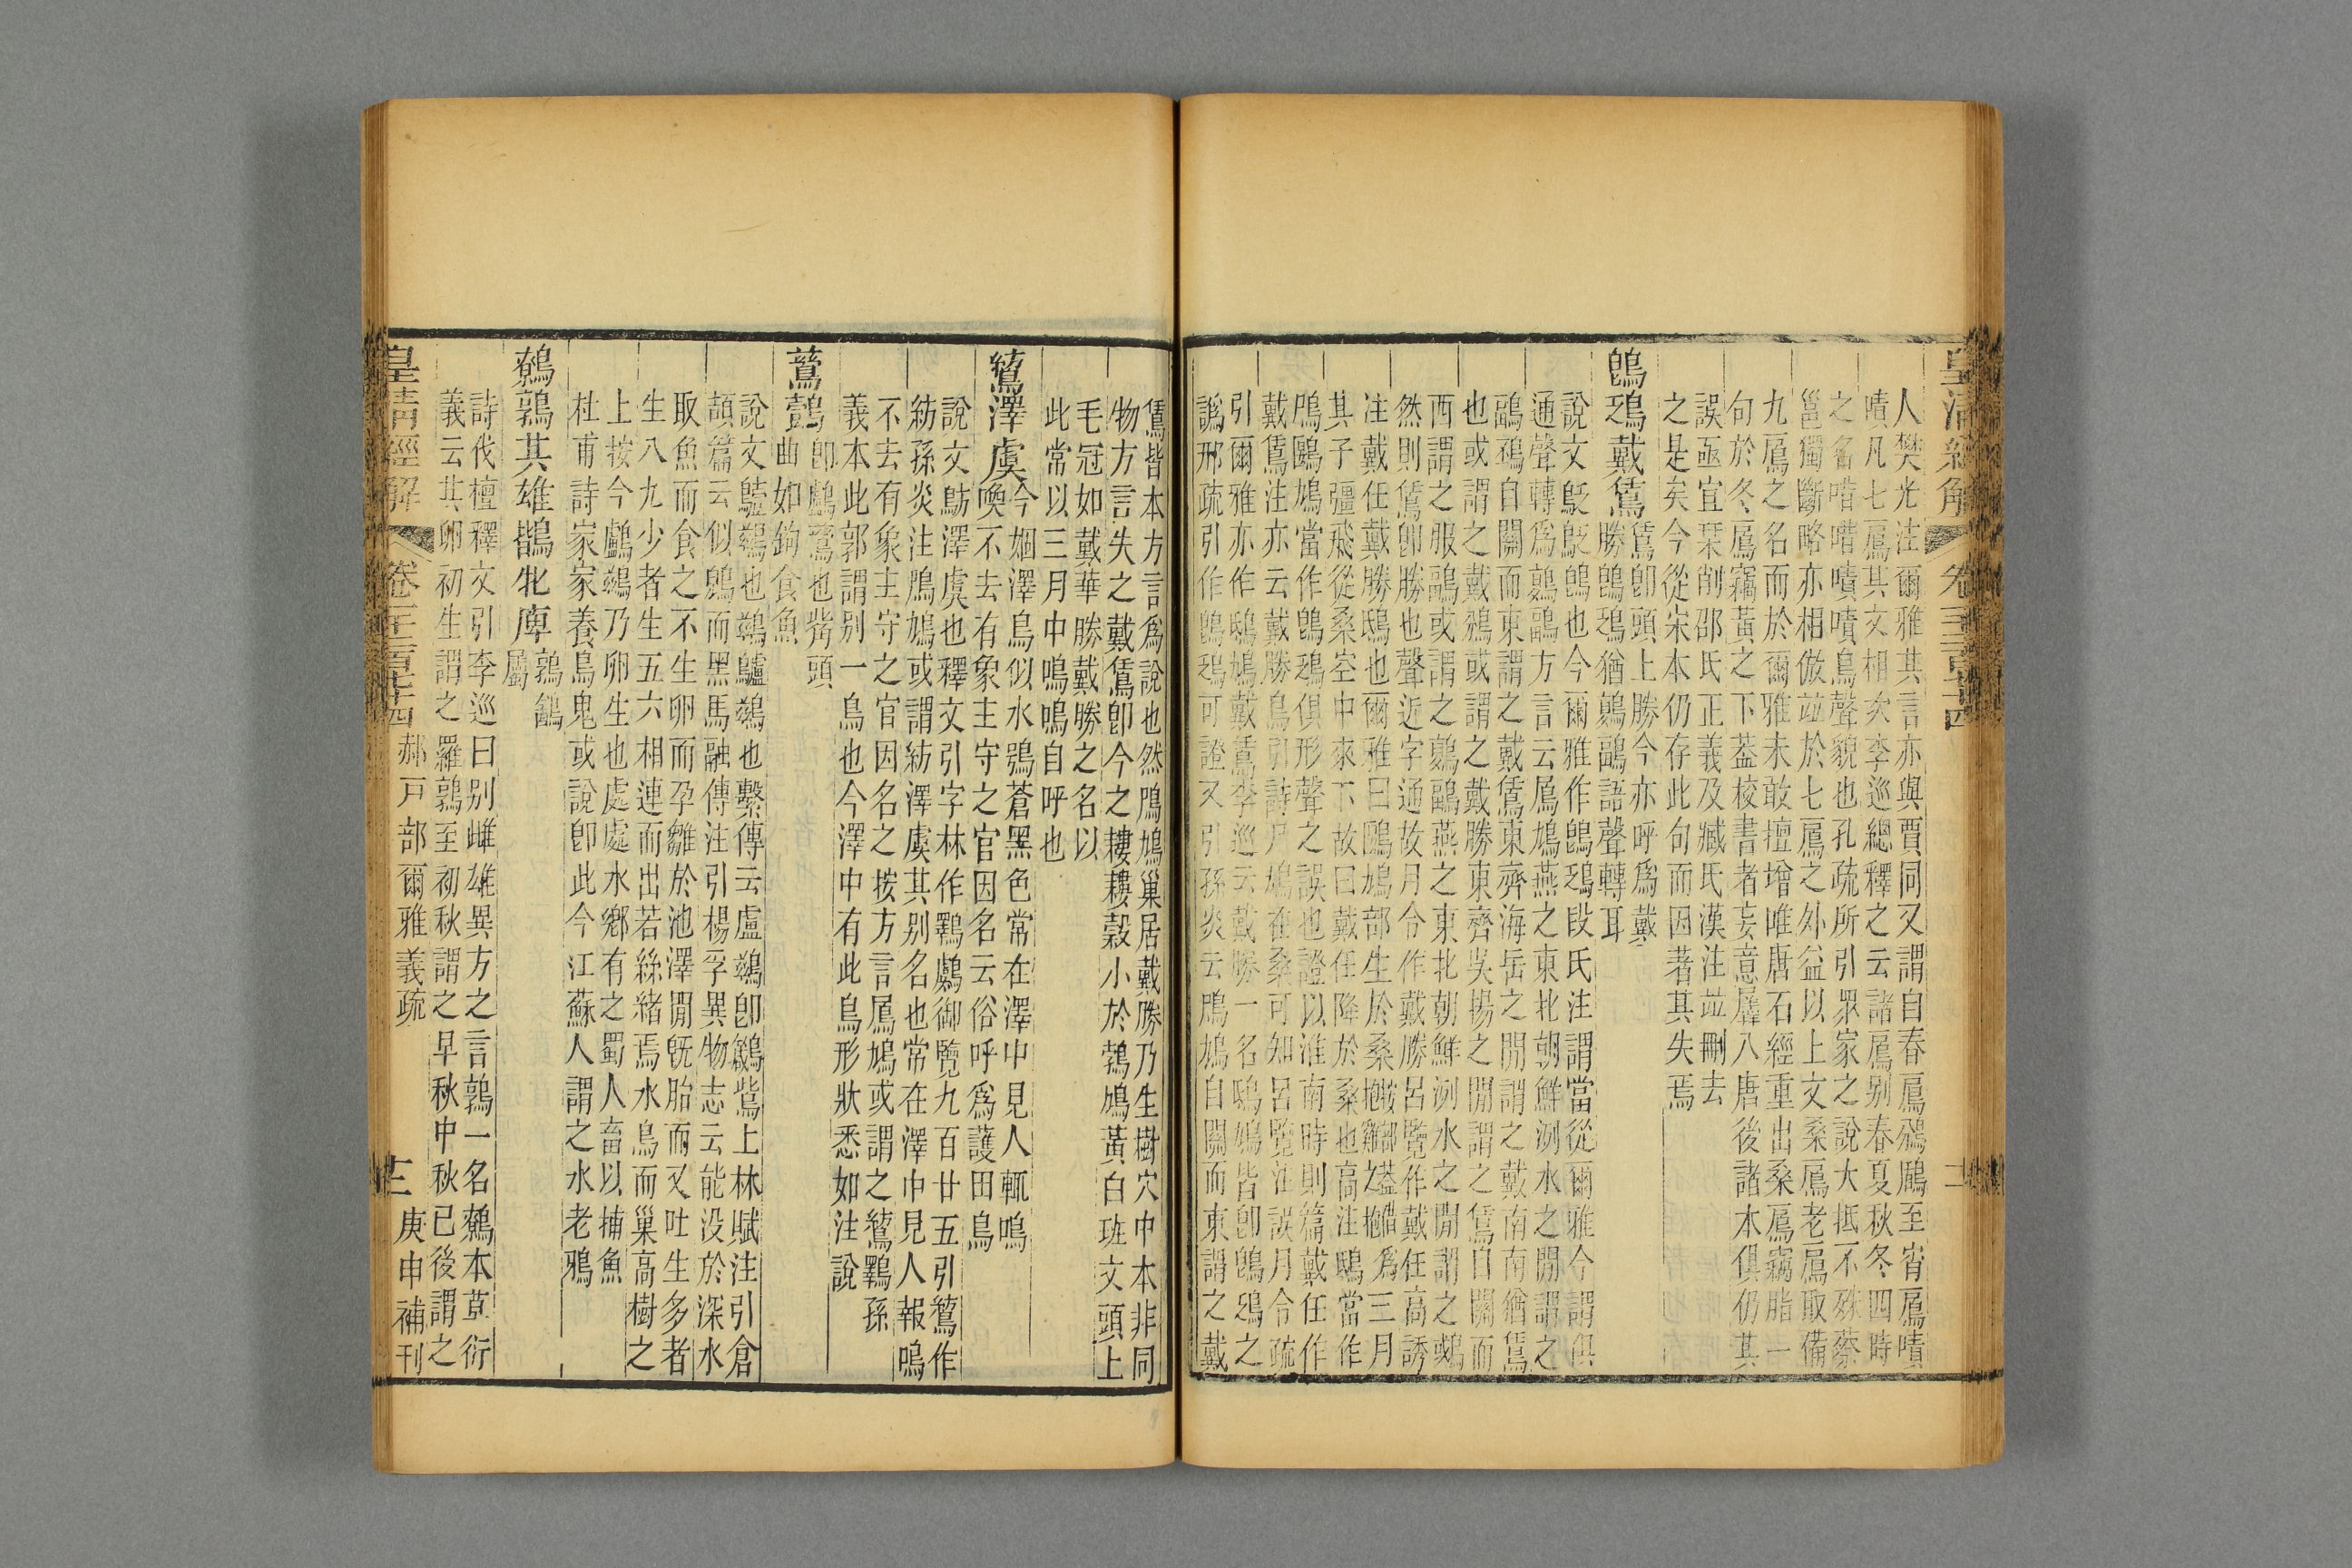 人樊光注爾雅其言亦與賈同又謂自春鳸鳻鶞至宵鳸嘖
嘖凡七鳸其文相次李巡總釋之云諸鳸别春夏秋冬四時
之名唶唶嘖嘖鳥聲貌也孔疏所引眾家之說大抵不殊蔡
邕獨斷略亦相倣竝於七鳸之外益以上文桑鳸老鳸取備
九鳸之名而於爾雅未敢擅增唯唐石經重出桑鳸竊脂一
句於冬鳸竊黃之下葢校書者妄意羼八唐後諸本俱仍其
誤亟宜栞削邵氏正義及臧氏漢注竝刪去
之是矣今從宋本仍存此句而因著其失焉
鵖鴔戴鵀
鵀卽頭上勝今亦呼爲戴
勝鵖鴔猶鶝鶝語聲轉耳
說文鴔鴔鵖也今爾雅作鵖鴔段氏注謂當從爾雅今謂俱
通聲轉爲鶝鶝方言云鳲鳩燕之東北朝鮮洌水之閒謂之
鶝鴔自關而東謂之戴鵀東齊海岳之閒謂之戴南南猶鵀
也或謂之戴鳻或謂之戴勝東齊吳揚之閒謂之鵀自關而
西謂之服鶝或謂之鶝鶝燕之東北朝鮮洌水之閒謂之鶝
然則鵀卽勝也聲近字通故月令作戴勝呂覽作戴任高誘
注戴任戴勝鴟也爾雅曰鶝鳩部生於桑三月
其子彊飛從桑空中來下故曰戴任降於桑也高注鴟當作
鳲鶝鳩當作鵖鴔俱形聲之誤也證以淮南時則篇戴任作
戴鵀注亦云戴勝鳥引詩尸鳩在桑可知呂覽注誤月令疏
引爾雅亦作鳲鳩戴鵀李巡云戴勝一名鳲鳩皆卽鵖鴔之
譌邢疏引作鵖鴔可證又引孫炎云鳲鳩自關而東謂之戴
鵀皆本方言爲說也然鳲鳩巢居戴勝乃生樹穴中本非同
物方言失之戴鵀卽今之耬耬穀小於鵓鳩黃白班文頭上
毛冠如戴華勝戴勝之名以
此常以三月中鳴鳴自呼也
鶭澤虞
今婟澤鳥似水鴞蒼黑色常在澤中見人輒鳴
喚不去有象主守之官因名云俗呼爲護田鳥
說文鶭澤虞也釋文引字林作鸅鸆御覽九百廿五引鶭作
紡孫炎注鳲鳩或謂紡澤虞其别名也常在澤中見人報鳴
不去有象主守之官因名之按方言鳲鳩或謂之鶭鸅孫
義本此郭謂别一鳥也今澤中有此鳥形狀悉如注說
鶿鷧
卽鸕鶿也觜頭
曲如鉤食魚
說文鷧鶿也鶿鸕鶿也繫傳云盧鶿卽鷧鴜上林賦注引倉
頡篇云似鶂而黑馬融傳注引楊孚異物志云能没於深水
取魚而食之不生卵而孕雛於池澤閒旣胎而又吐生多者
生八九少者生五六相連而出若絲緒焉水鳥而巢高樹之
上按今鸕鶿乃卵生也處處水鄉有之蜀人畜以捕魚
杜甫詩家家養烏鬼或說卽此今江蘇人謂之水老鴉
鷯鶉其雄鶛牝庳
鶉䳺
屬
詩伐檀釋文引李巡曰别雌雄異方之言鶉一名鷯本草衍
義云其卵初生謂之羅鶉至初秋謂之早秋中秋已後謂之
皇清經解 郝戸部爾雅義疏 庚申補刊